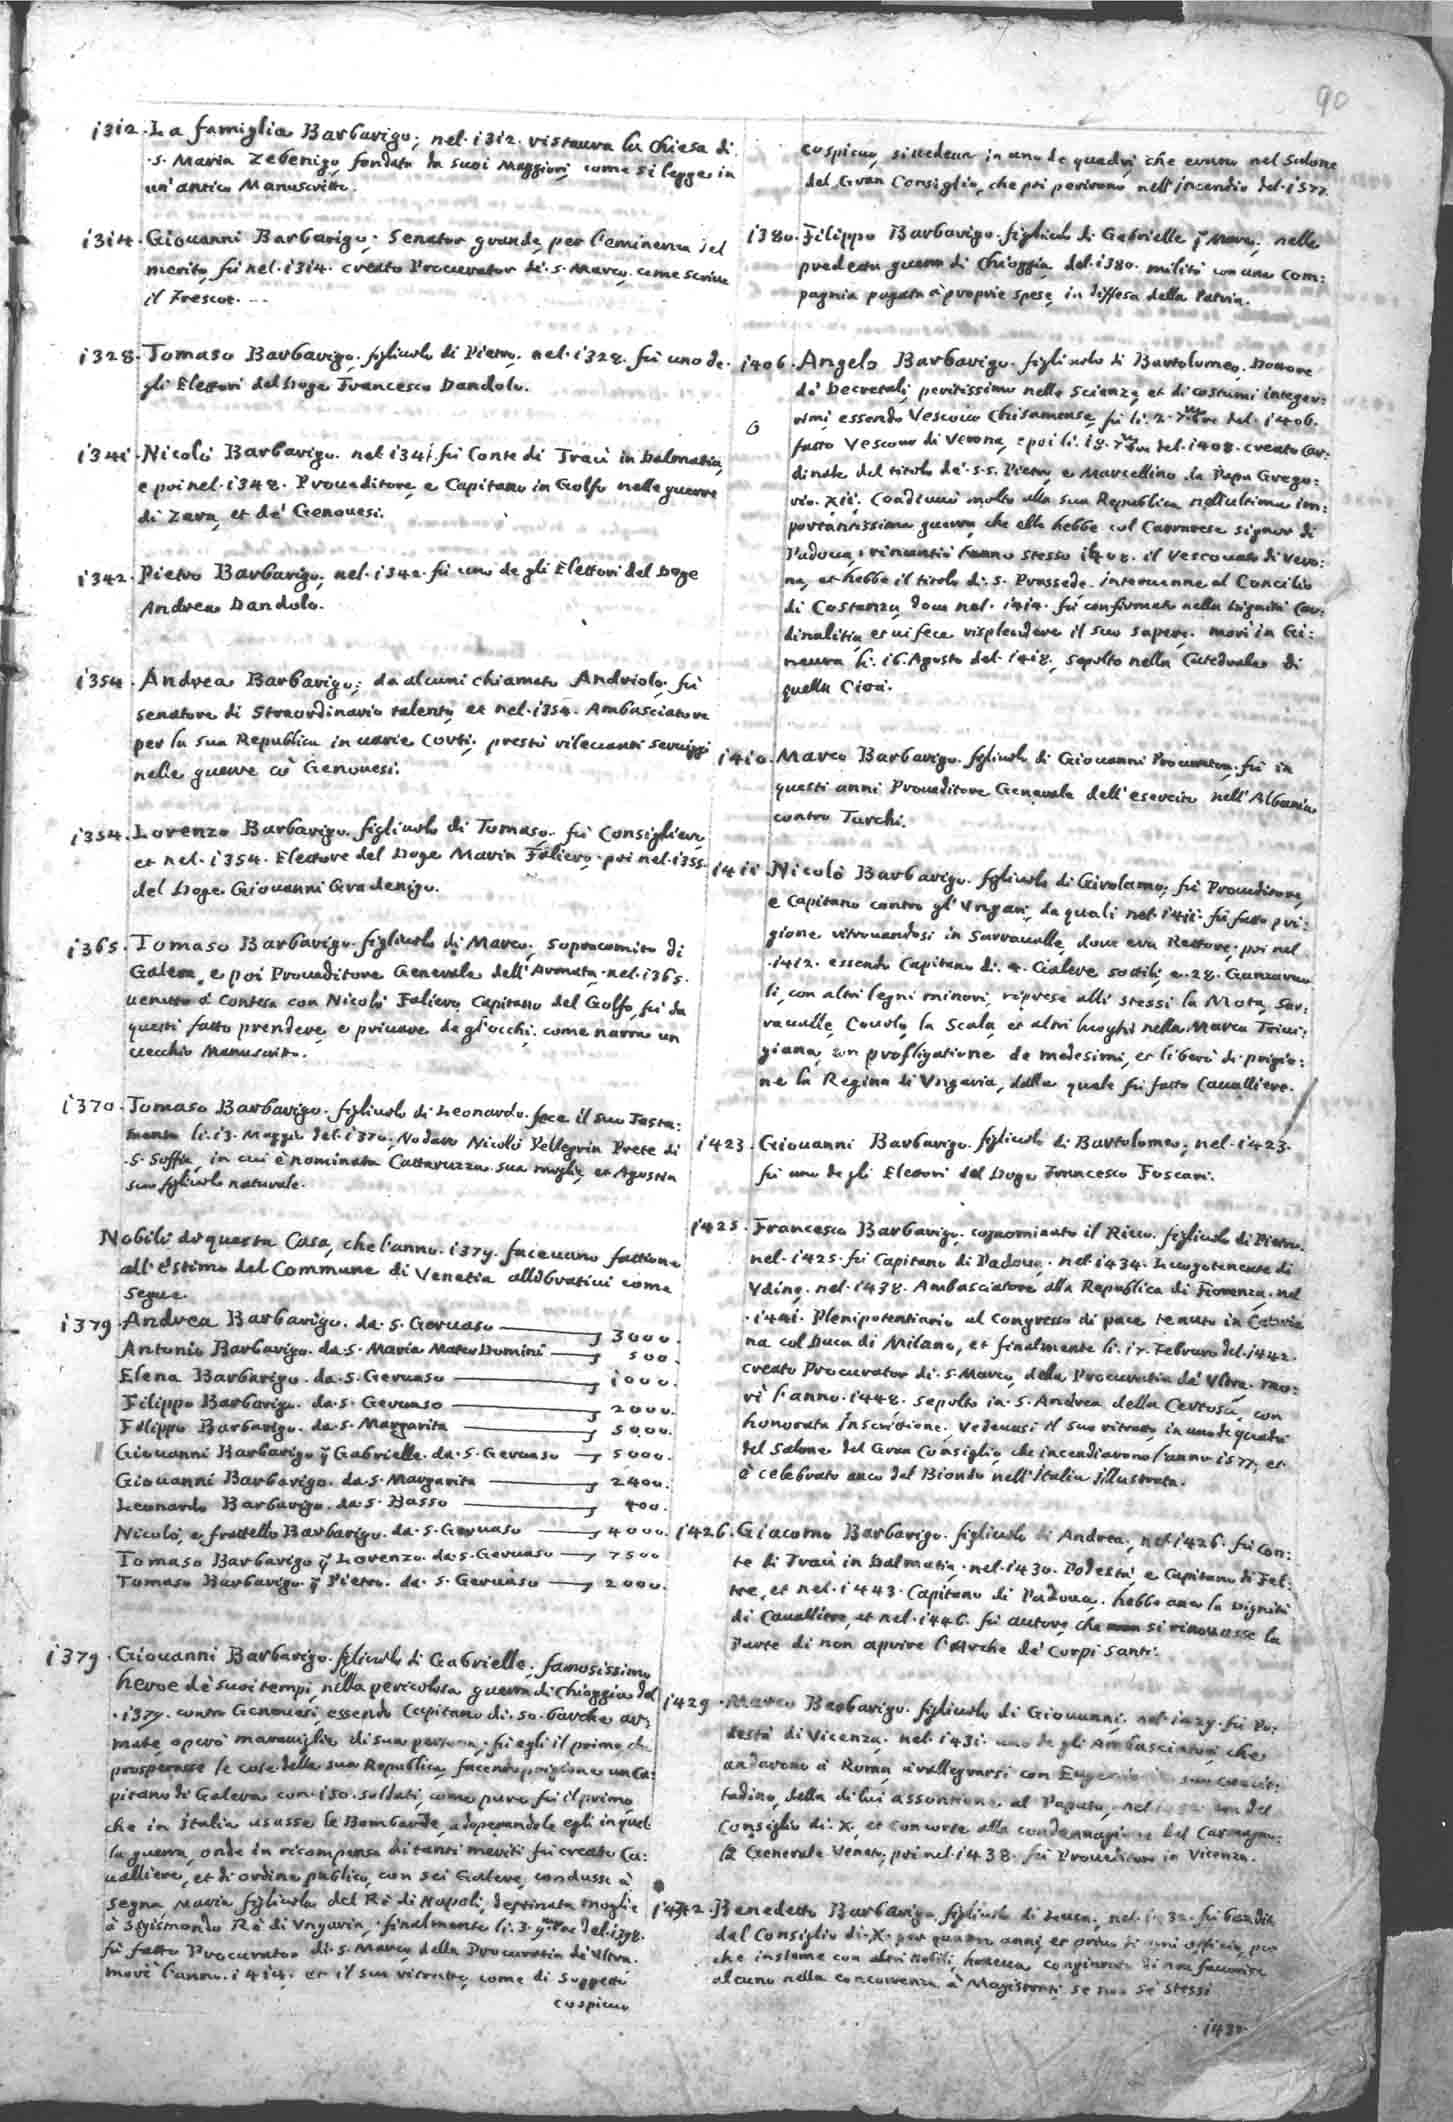 90
1312. La famiglia Barbarigo, nel. 1312. ristaura la Chiesa di
.S. Maria Zebenigo, fondata da suoi Maggiori, come si legge in
un'antico Manuscritto.
1314. Giovanni Barbarigo. Senator grande, per l'eminenza del
merito, fù nel. 1314. creato Procurator di. S. Marco, come scrive
il Frescot.
1328. Tomaso Barbarigo. figliuolo di Pietro, nel. 1328. fù uno de.
gli Elettori del Doge Francesco Dandolo.
1341. Nicolò Barbarigo. nel 1341. fù Conte di Traù in Dalmatia,
e poi nel. 1348. Proueditore, e Capitano in Golfo nelle guerre
di Zara, et de' Genouesi.
1342. Pietro Barbarigo, nel. 1342. fù uno de gli Elettori del Doge
Andrea Dandolo.
1354. Andrea Barbarigo; da alcuni chiamato Andriolo. fù
senatore di Straordinario talento, et nel. 1354. Ambasciatore
per la sua Republica in uarie Corti. prestò rileuanti seruiggi
nelle guerre cò Genouesi.
1354. Lorenzo Barbarigo. figliuolo di Tomaso. fù Consigliere,
et nel. 1354. Elettore del Doge Marin Faliero. poi nel. 1355.
del Doge Giouanni Gradenigo.
1365. Tomaso Barbarigo. figliuolo di Marco, sopracomito di
Galera, e poi Proueditore Generale dell'Armata. nel. 1365.
uenuto à contesa con Nicolò Faliero, Capitano del Golfo, fù da
questi fatto prendere, e priuare de gl'occhi. come narra un
uecchio Manuscritto.
1370. Tomaso Barbarigo. figliuolo di Leonardo. fece il suo Testa:
mento li. 13. Maggio del. 1370. Nodaro Nicolò Pellegrin Prete di
.S. Soffia, in cui è nominata Cattaruzza sua moglie, et Agostin
suo figliuolo naturale.
Nobili di questa Casa, che l'anno. 1379. faceuano fattione
all'Estimo del Commune di Venetia allibrati ui come
segue.
1379. Andrea Barbarigo. da. S. Geruaso 3000.
Antonio Barbarigo. da. S. Maria Mater Domini 500.
Elena Barbarigo. da. S. Geruaso 1000.
Filippo Barbarigo. da. S. Geruaso 2000.
Filippo Barbarigo. da. S. Margarita 5000.
Giouanni Barbarigo q Gabrielle. da. S. Geruaso 5000.
Giouanni Barbarigo. da. S. Margarita 2400.
Leonardo Barbarigo. da. S. Basso 400.
Nicolò, e fratello Barbarigo. da. S. Geruaso 4000.
Tomaso Barbarigo q Lorenzo. da. S. Geruaso 7500
Tomaso Barbarigo. q Pietro. da. S. Geruaso 2000.
1379. Giouanni Barbarigo. figliuolo di Gabrielle, famosissimo
heroe de suoi tempi, nella pericolosa guerra di Chioggia del
.1379. contro Genouesi, essendo Capitano di. 50. barche ar:
mate, operò marauiglie di sua persona, fù egli il primo che
prosperasse le cose della sua Republica, facendo prigione un Ca:
pitano di Galera con. 150. soldati, come pure fù il primo
che in Italia usasse le Bombarde, adoperandole egli in quel:
la guerra, onde in ricompensa di tanti meriti fù creato Ca:
ualliere, et di ordine publico, con sei Galere, condusse à
Segna, Maria figliuola del Rè di Napoli, destinata moglie
à Sigismondo Rè di Vngaria, finalmente li. 3. 9mbre del. 1398.
fù fatto Procurator di. S. Marco, della Procuratia de Vltra.
morì l'anno. 1414. et il suo ritratto, come di Soggetto
cospicuo
cospicuo, si uedeua in uno de quadri, che erano nel Salone
del Gran Consiglio, che poi perirono nell'incendio del. 1577.
1380. Filippo Barbarigo. figliuolo di Gabrielle q Marco, nella
predetta guerra di Chioggia del. 1380. militò con una Com:
pagnia pagata à proprie spese, in diffesa della Patria.
1406. Angelo Barbarigo. figliuolo di Bartolomeo, Dottore
de' Decretali, peritissimo nelle Scienze, et di costumi integer:
rimi, essendo Vescouo Chisamense, fù li. 2. 7mbre del. 1406.
fatto Vescouo di Verona, e poi li. 18. 7mbre del. 1408. creato Car:
dinale del titolo de'. S.S. Pietro, e Marcellino. da Papa Grego:
rio. XII. Coadiuuò molto alla sua Republica nell'ultima im:
portantissima guerra, che ella hebbe col Carrarese signor di
Padoua, rinuntiò l'anno stesso 1408. il Vescouato di Vero:
na, et hebbe il titolo di. S. Prassede. interuenne al Concilio
di Costanza, doue nel. 1414. fù confirmato nella Dignità Car:
dinalitia, et ui fece risplendere il suo sapere. morì in Gi:
neura li. 16. Agosto del. 1418, sepolto nella Catedrale di
quella Città.
1410. Marco Barbarigo. figliuolo di Giouanni Procurator. fù in
questi anni Proueditore Generale dell'esercito nell'Albania
contro Turchi.
1411. Nicolò Barbarigo. figliuolo di Girolamo, fù Proueditore,
e Capitano contro gl'Vngari, da quali nel. 1411. fù fatto pri:
gione ritrouandosi in Sarraualle, doue era Rettore, poi nel
.1412. essendo Capitano di. 4. Galere sottili, e. 28. Ganzaruo
li, con altri legni minori, riprese alli stessi la Mota, Sar:
raualle, Couolo, la Scala, et altri luoghi nella Marca Triui:
giana, con profligatione de medesimi, et liberò di prigio:
ne la Regina di Vngaria, dalla quale fù fatto Caualliere.
1423. Giouanni Barbarigo. figliuolo di Bartolomeo, nel. 1423.
fù uno de gli Elettori del Doge Francesco Foscari.
1425. Francesco Barbarigo, cognominato il Ricco. figliuolo di Pietro.
nel. 1425. fù Capitano di Padoua. nel. 1434. Luogotenente di
Vdine. nel. 1438. Ambasciatore alla Republica di Fiorenza, nel
.1441. Plenipotentiario al Congresso di pace tenuto in Cabria
na col Duca di Milano, et finalmente li. 17. Febraro del. 1442.
creato Procurator di. S. Marco, della Procuratia de Vltra. mo:
rì l'anno. 1448. sepolto in. S. Andrea della Certosa, con
honorata Inscrittione. Vedeuasi il suo ritratto, in uno de quadri
del Salone del Gran Consiglio, che incendiarono l'anno. 1577, et
è celebrato anco dal Biondo nell'Italia illustrata.
1426. Giacomo Barbarigo. figliuolo di Andrea, nel. 1426. fù Con:
te di Traù in Dalmatia. nel. 1430. Podestà, e Capitano di Fel:
tre, et nel. 1443. Capitano di Padoua. hebbe anco la Dignità
di Caualliere, et nel. 1446. fù autore, che si rinouasse la
Parte di non aprire l'Arche de' Corpi Santi.
1429. Marco Barbarigo. figliuolo di Giouanni, nel. 1429. fù Po:
destà di Vicenza. nel. 1431. uno de gli Ambasciatori, che
andarono à Roma, à rallegrarsi con Eugenio suo concit:
tadino, della di lui assontione al Papato, nel del
Consiglio di. X. et concorse alla condannagione del Carmagno:
la Generale Veneto, poi nel. 1438. fù Proueditore in Vicenza.
1432. Benedetto Barbarigo, figliuolo di Luca, nel. 1432. fù bandito
dal Consiglio di. X. per quattro anni, et priuo di ogni officio, per
che insieme con altri Nobili, haueua congiurato di non fauorire
alcuno nella concorrenza à Magistrati se non sè stessi
.1432.